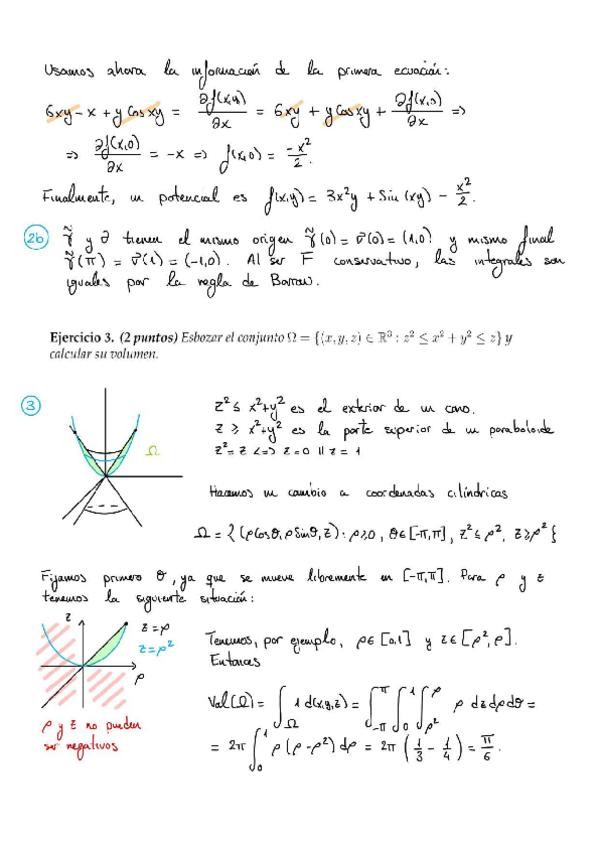 Usamos ahora la información de la primera ecuación:
6xy - x + y Cos xy = ∂f(x,y)/∂x = 6xy + y Cos xy + ∂f(x,0)/∂x =>
=> ∂f(x,0)/∂x = -x => f(x,0) = -x²/2.
Finalmente, un potencial es f(x,y) = 3x²y + Sin (xy) - x²/2.
2b γ̃ y ∂ tienen el mismo origen γ̃(0) = σ(0) = (1,0) y mismo final
γ̃(π) = σ(1) = (-1,0). Al ser F conservativo, las integrales son
iguales por la regla de Barrow.
Ejercicio 3. (2 puntos) Esbozar el conjunto Ω = {(x, y, z) ∈ ℝ³ : z² ≤ x² + y² ≤ z} y
calcular su volumen.
3
Ω
z² ≤ x²+y² es el exterior de un cono.
z ≥ x²+y² es la parte superior de un paraboloide
z² = z <=> z=0 || z = 1
Hacemos un cambio a coordenadas cilíndricas
Ω = {(ρCosθ, ρSinθ, z): ρ≥0, θ∈[-π,π], z² ≤ ρ², z≥ρ²}
Fijamos primero θ, ya que se mueve libremente en [-π,π]. Para ρ y z
tenemos la siguiente situación:
z
z=ρ
z=ρ²
ρ
ρ y z no pueden
ser negativos
Tenemos, por ejemplo, ρ∈[0,1] y z∈[ρ²,ρ].
Entonces
Vol(Ω) = ∫_Ω 1 d(x,y,z) = ∫_{-π}^{π} ∫_0^1 ∫_{ρ²}^{ρ} ρ dz dρ dθ =
= 2π ∫_0^1 ρ(ρ-ρ²) dρ = 2π (1/3 - 1/4) = π/6.